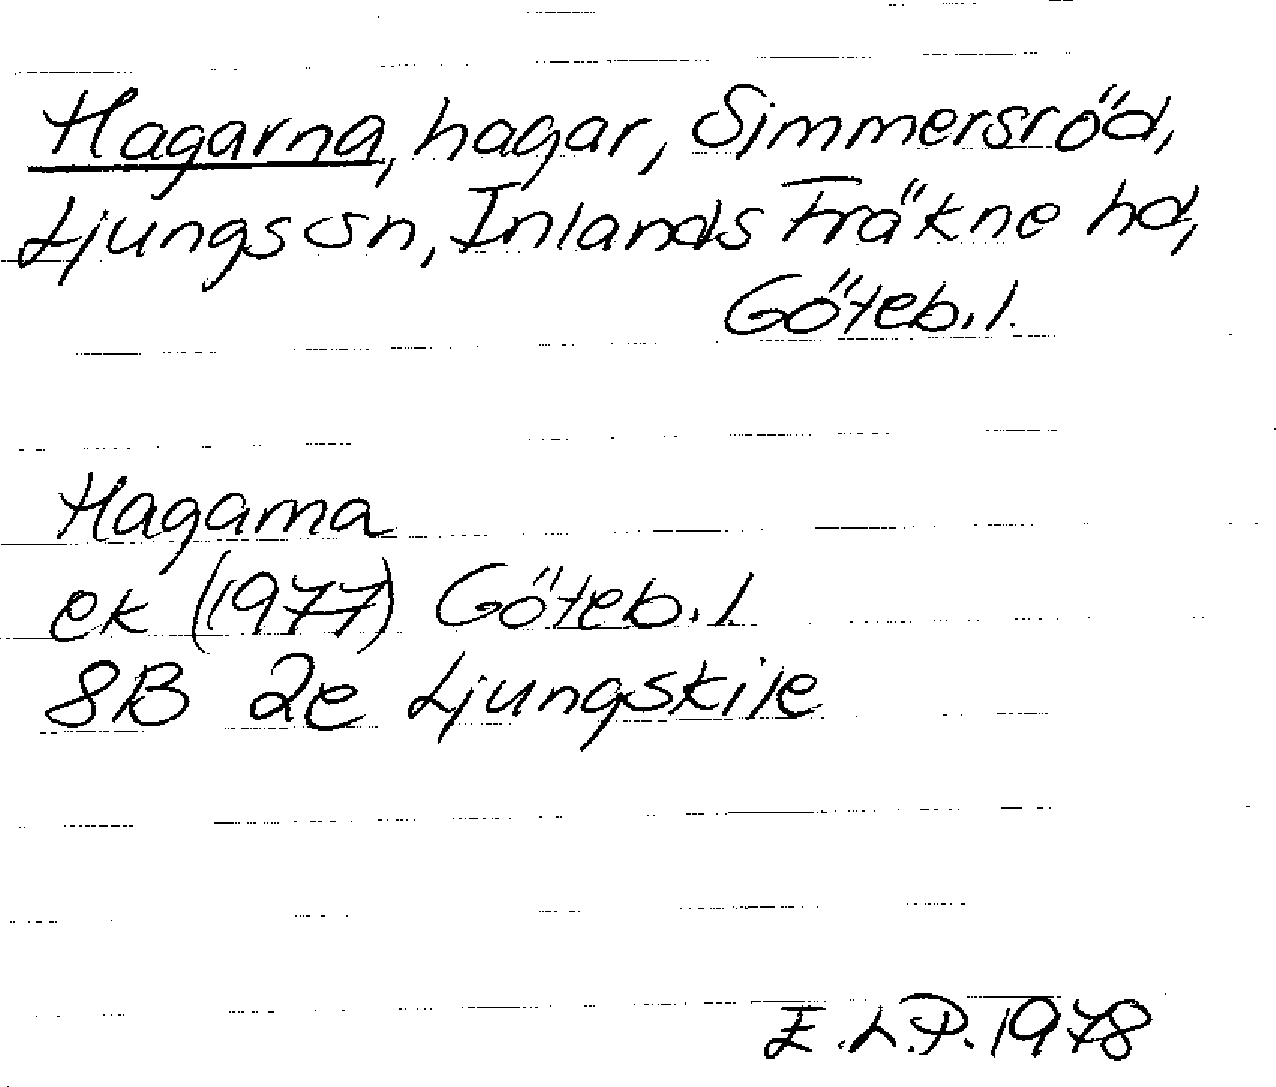 Hagarna, hagar, Simmersröd,
Ljungs sn, Inlands Fräkne hd,
Göteb. l.
Hagarna
ek (1977) Göteb. l.
8B 2e Ljungskile
E.L.P. 1978